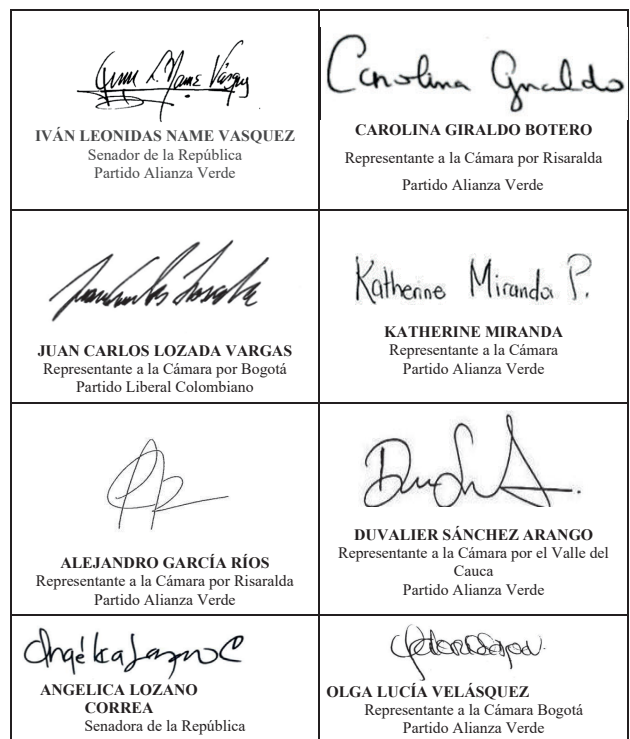 IVÁN LEONIDAS NAME VASQUEZ
Senador de la República
Partido Alianza Verde
Carolina Giraldo
CAROLINA GIRALDO BOTERO
Representante a la Cámara por Risaralda
Partido Alianza Verde
JUAN CARLOS LOZADA VARGAS
Representante a la Cámara por Bogotá
Partido Liberal Colombiano
Katherine Miranda P.
KATHERINE MIRANDA
Representante a la Cámara
Partido Alianza Verde
ALEJANDRO GARCÍA RÍOS
Representante a la Cámara por Risaralda
Partido Alianza Verde
DUVALIER SÁNCHEZ ARANGO
Representante a la Cámara por el Valle del
Cauca
Partido Alianza Verde
Angélica Lozano C
ANGELICA LOZANO
CORREA
Senadora de la República
OLGA LUCÍA VELÁSQUEZ
Representante a la Cámara Bogotá
Partido Alianza Verde